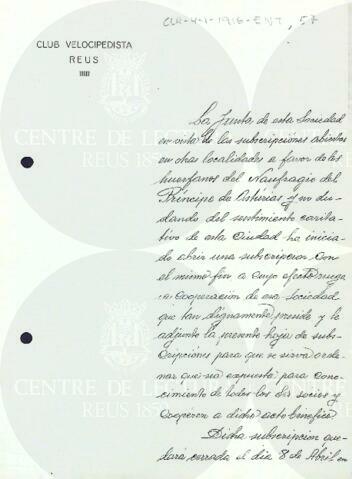 CLR-4-1-1916-ENT, 57
CLUB VELOCIPEDISTA
REUS
La Junta de esta Sociedad
en vista de las subscripciones abiertas
en otras localidades a favor de los
huerfanos del Naufragio del
Príncipe de Asturias y no du-
dando del sentimiento carita-
tivo de esta Ciudad ha inicia-
do abrir una subscripcion con
el mismo fin a cuyo efecto ruega
la cooperacion de esa Sociedad
que tan dignamente preside y le
adjunto la presente hoja de subs-
cripciones para que se sirva orde-
nar que sea expuesta para cono-
cimiento de todos los Srs socios y
cooperen a dicho acto benefico.
Dicha subscripcion que-
dará cerrada el dia 8 de Abril en
CENTRE DE LECTURA
REUS 1859
CENTRE DE LECTURA
REUS 1859